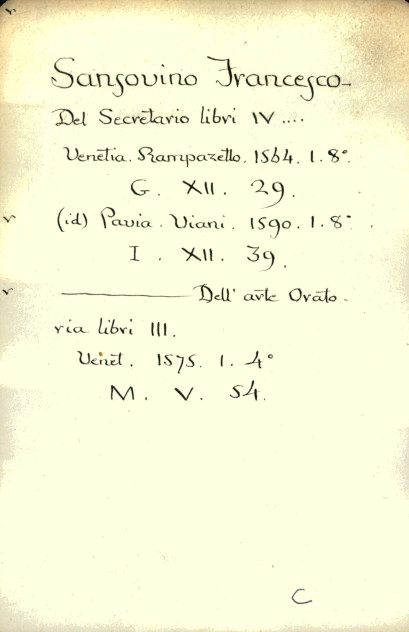 Sansovino Francesco
Del Secretario libri IV ....
Venetia. Rampazetto. 1564. 1. 8°.
G. XII. 29.
(id) Pavia. Viani. 1590. 1. 8°.
I. XII. 39.
Dell' arte Orato-
ria libri III.
Venet. 1575. 1. 4°
M. V. 54.
C